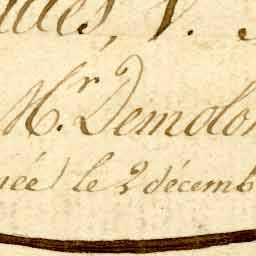 V.
Mr. Demolon
née) le 2 décemb